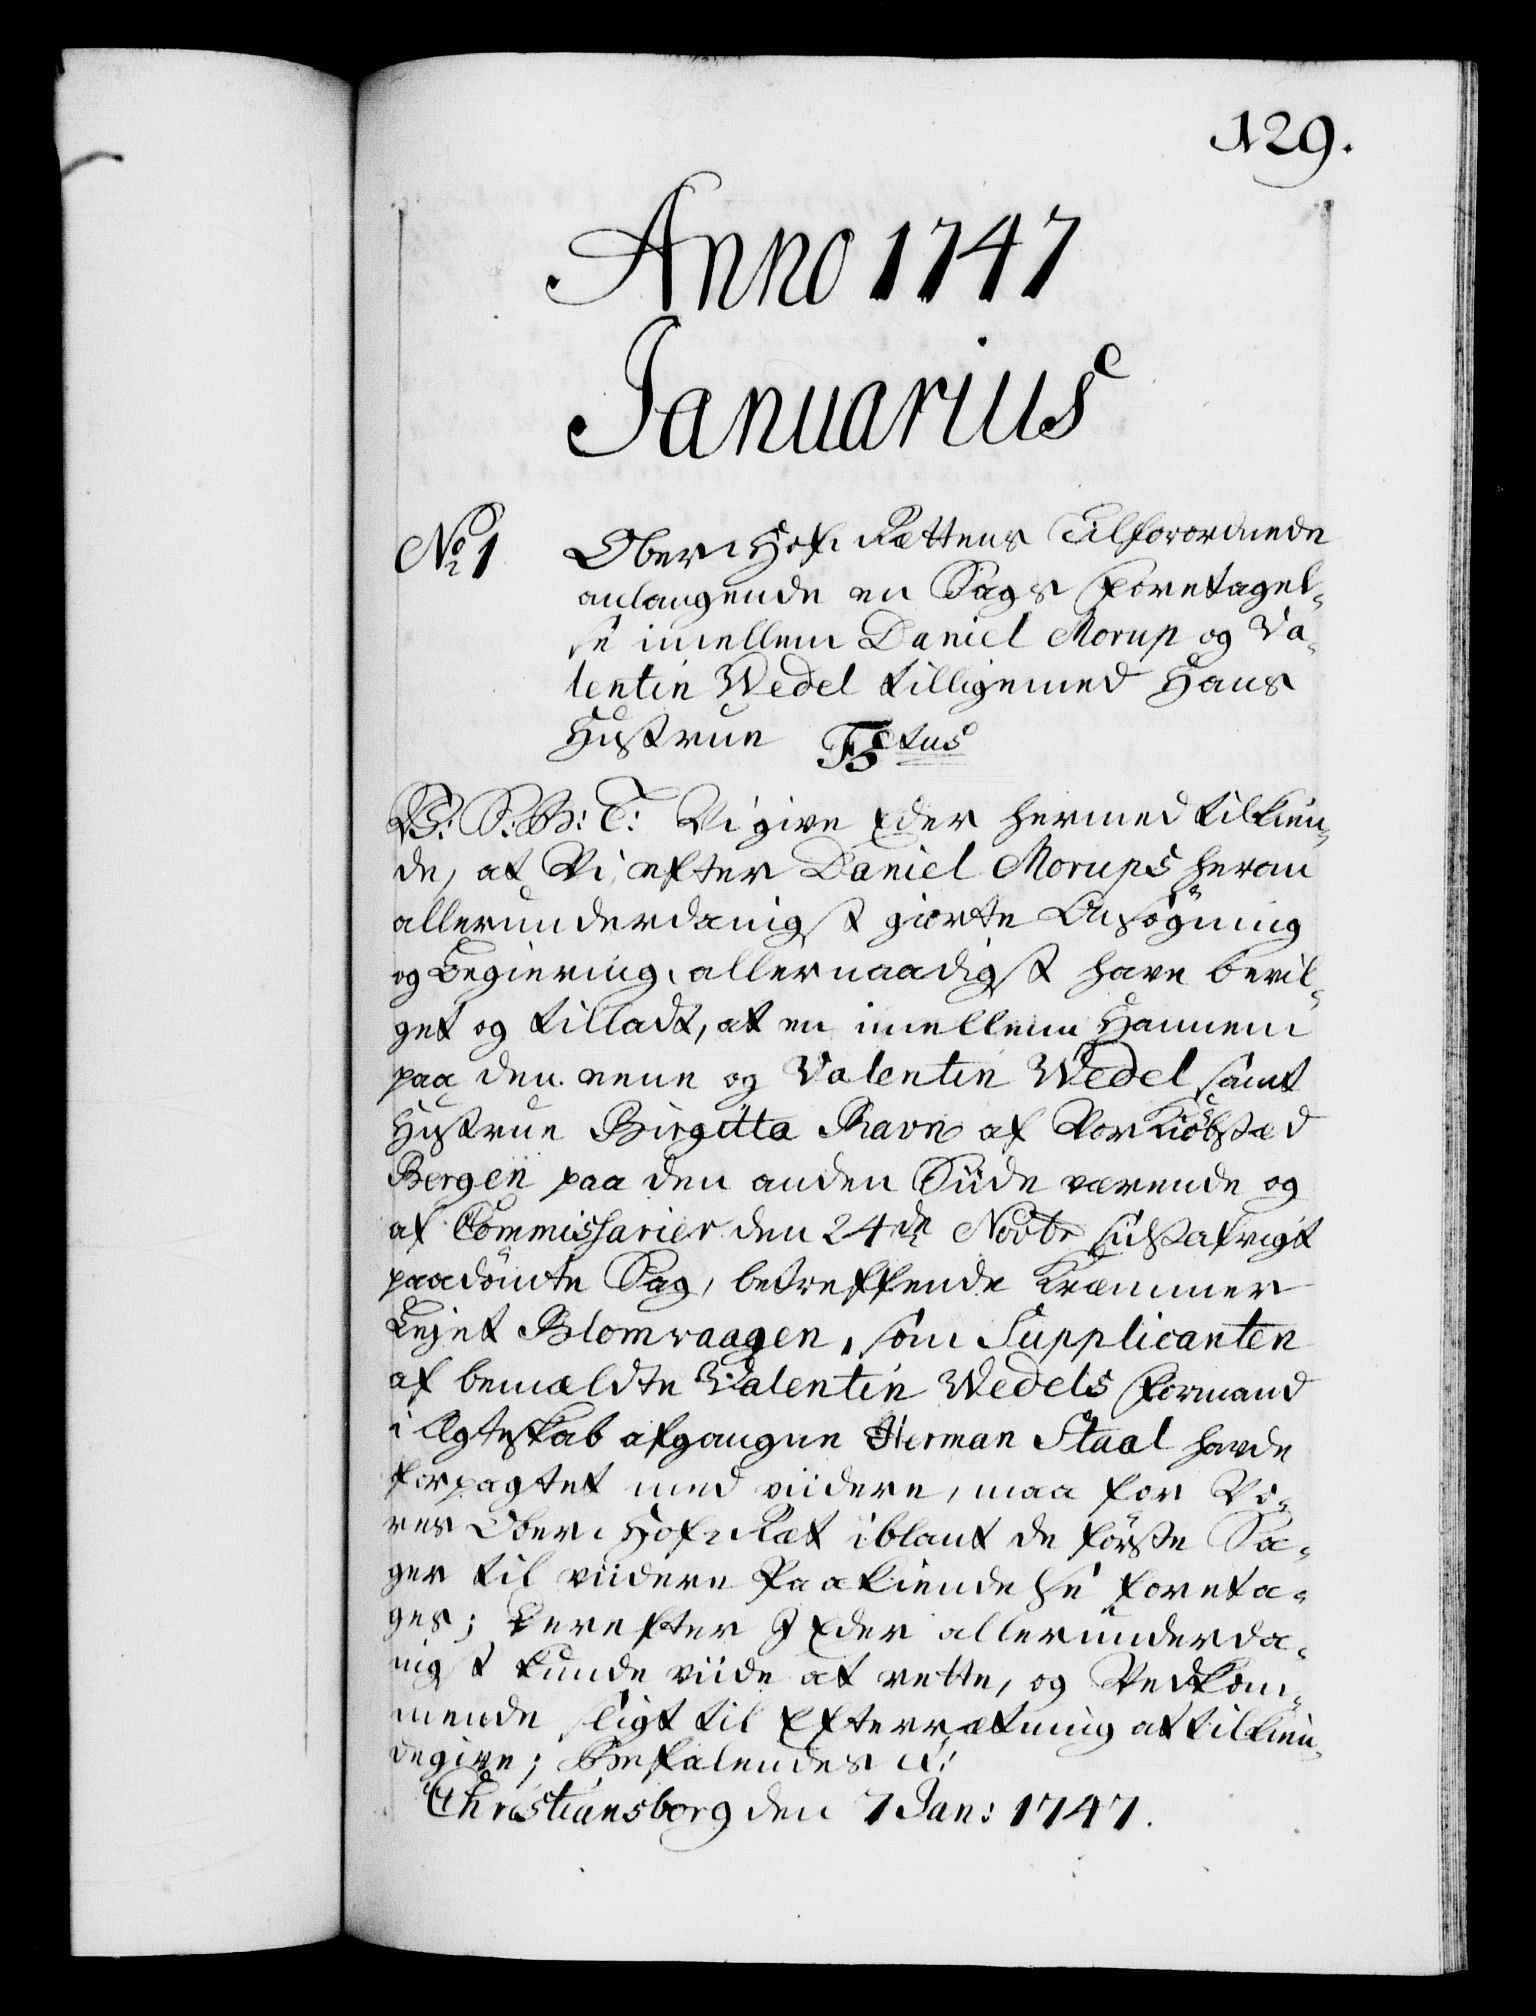 129.
Anno 1747
Januarius
No 1
Ober Hof Rettens Tilforordnede
anlangende en Sags Foretagel-
se imellem Daniel Morup og Va-
lentin Wedel tilligemed Hans
Hustrue F5tus
V: S: B: T: Vi give Eder hermed tilkien-
de, at Vi efter Daniel Morups herom
allerunderdanigst giorte Ansøgning
og Begiering, allernaadigst have bevil-
get og tilladt, at en imellem Hannem
paa den eene og Valentin Wedel samt
Hustrue Birgitta Ravn af Vor Kiöbstæd
Bergen paa den anden Siide værende og
af Commissarier den 24de Novbr sidstafvigt
paadömte Sag, betreffende Kræmmer
Lejet Blomvaagen, som Supplicanten
af bemældte Valentin Wedels Formand
i Ægteskab afgangne Herman Staal havde
forpagtet med viidere, maa for Vo-
res Ober Hof Ret iblant de förste Sa-
ger til viidere Paakiendelse foreta-
ges; Derefter I Eder allerunderda-
nigst kunde viide at rette, og Vedkom-
mende sligt til Efterretning at tilkien-
degive; Befalendes &:
Christiansborg den 7 Jan: 1747.